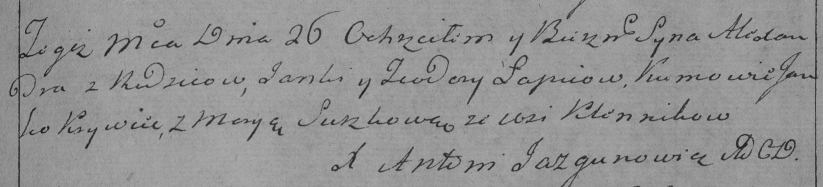 Tegiż Mca Dnia 26 Ochrzciłem y Bierzm Syna Alexan
Dra z Rodzicow, Janki y Teodory Łapciow, Kumowie Jan
ko Krywiec, z Maryą Suszkową ze wsi Klennikow
X Antoni Jazgunowicz